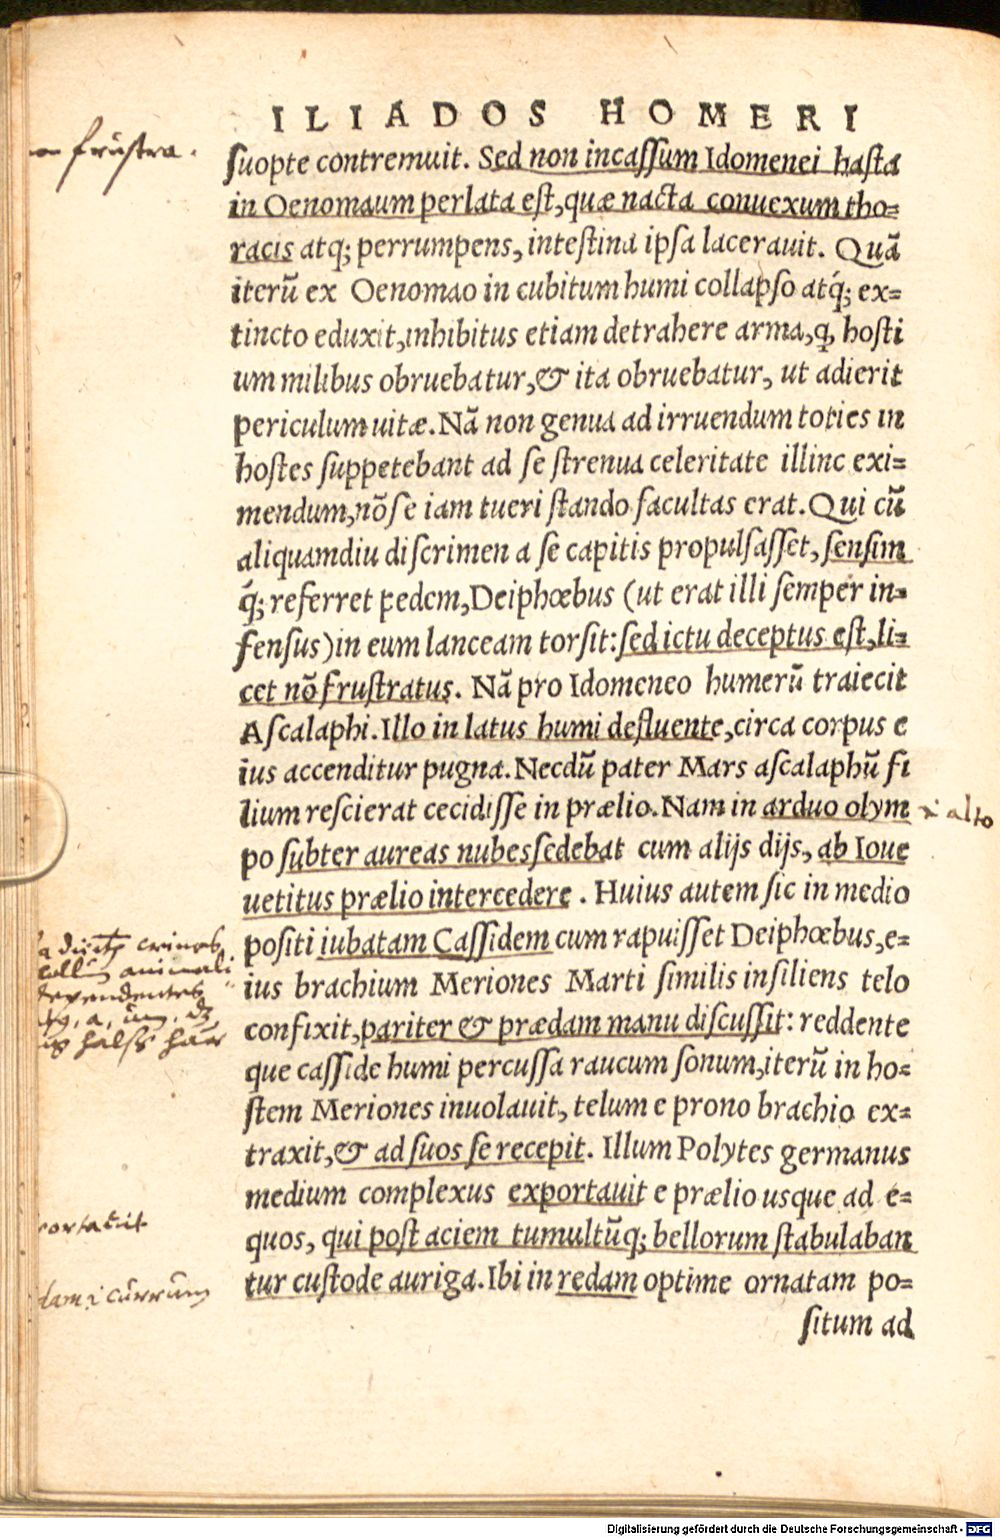 ILIADOS HOMERI
frustra.
ſuopte contremuit. Sed non incaſſum Idomenei haſta
in Oenomaum perlata eſt, quæ nacta conuexum tho=
racis atq; perrumpens, inteſtina ipſa lacerauit. Quã
iterũ ex Oenomao in cubitum humi collapſo atq́; ex=
tincto eduxit, inhibitus etiam detrahere arma, ꝙ hoſti
um milibus obruebatur, & ita obruebatur, ut adierit
periculum uitæ. Nã non genua ad irruendum toties in
hoſtes ſuppetebant ad ſe ſtrenua celeritate illinc exi=
mendum, nõ ſe iam tueri ſtando facultas erat. Qui cũ
aliquamdiu diſcrimen a ſe capitis propulſaſſet, ſenſim
q́; referret pedem, Deiphœbus (ut erat illi ſemper in=
fenſus) in eum lanceam torſit: ſed ictu deceptus eſt, li=
cet nõ fruſtratus. Nã pro Idomeneo humerũ traiecit
Aſcalaphi. Illo in latus humi defluente, circa corpus e
ius accenditur pugna. Necdũ pater Mars aſcalaphũ fi
lium reſcierat cecidiſſe in prælio. Nam in arduo olym
alto
po ſubter aureas nubes ſedebat cum alijs dijs, ab Ioue
uetitus prælio intercedere . Huius autem ſic in medio
poſiti iubatam Caſſidem cum rapuiſſet Deiphœbus, e=
crines
collum animali
dependentes
halſz haar
ius brachium Meriones Marti ſimilis inſiliens telo
confixit, pariter & prædam manu diſcuſſit: reddente
que caſſide humi percuſſa raucum ſonum, iterũ in ho=
ſtem Meriones inuolauit, telum e prono brachio ex=
traxit, & ad ſuos ſe recepit. Illum Polytes germanus
medium complexus exportauit e prælio usque ad e=
portauit
quos, qui poſt aciem tumultũq; bellorum ſtabulaban
tur cuſtode auriga. Ibi in redam optime ornatam po=
currum
ſitum ad
Digitalisierung gefördert durch die Deutsche Forschungsgemeinschaft - DFG